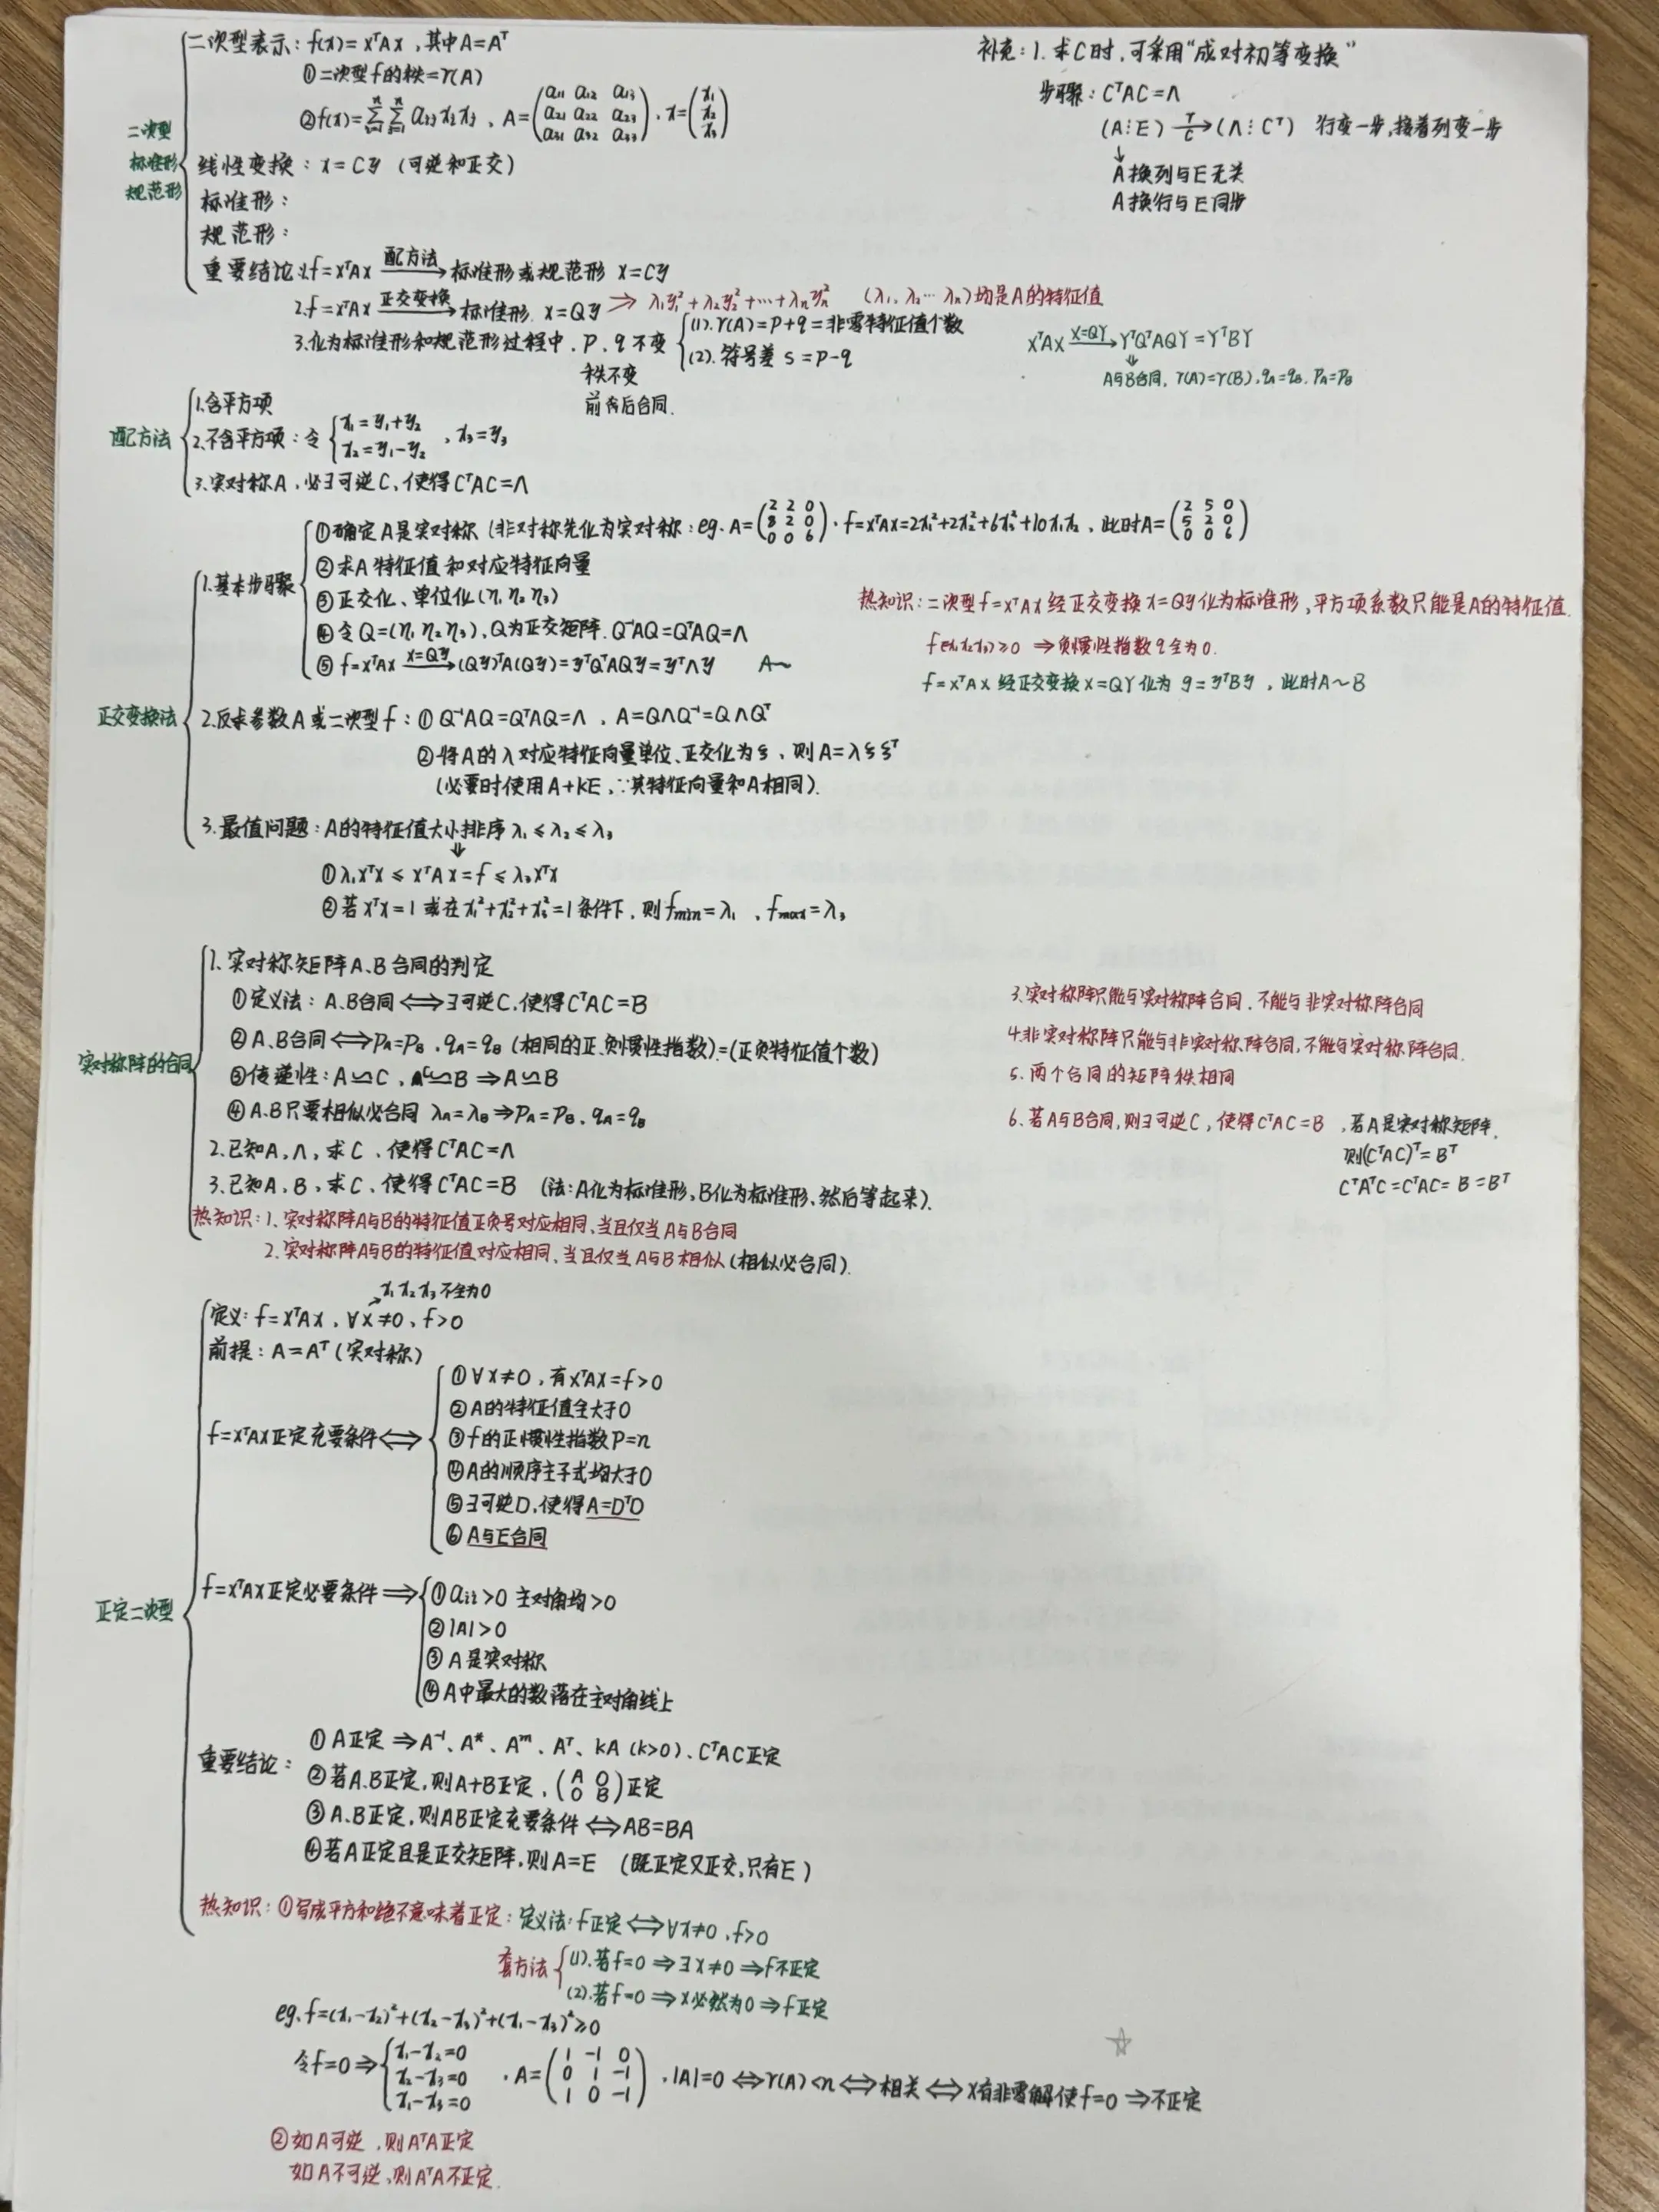 二次型表示：f(x)=xᵀAx，其中A=Aᵀ
①二次型f的秩=r(A)
②f(x)=∑ᵢ₌₁ⁿ∑ⱼ₌₁ⁿ aᵢⱼxᵢxⱼ、A=(a₁₁ a₁₂ a₁₃ / a₂₁ a₂₂ a₂₃ / a₃₁ a₃₂ a₃₃)，x=(x₁ / x₂ / x₃)
二次型
标准形
规范形
线性变换：x=Cy (可逆和正交)
标准形：
规范形：
重要结论：1.f=xᵀAx —配方法→ 标准形或规范形 x=Cy
2.f=xᵀAx —正交变换→ 标准形. x=Qy ⇒ λ₁y₁²+λ₂y₂²+…+λₙyₙ² (λ₁、λ₂…λₙ)均是A的特征值
3.化为标准形和规范形过程中、P、q不变
(1).r(A)=P+q=非零特征值个数
(2).符号差 S=P-q
秩不变
前后合同.
补充：1.求C时，可采用“成对初等变换”
步骤：CᵀAC=Λ
(A⋮E) —T/C→ (Λ⋮Cᵀ) 行变一步,接着列变一步
↓
A换列与E无关
A换行与E同步
XᵀAX —X=QY→ YᵀQᵀAQY=YᵀBY
⇓
A与B合同，r(A)=r(B)，qA=qB，PA=PB
配方法
1.含平方项
2.不含平方项：令 {x₁=y₁+y₂ / x₂=y₁-y₂ ，x₃=y₃
3.实对称A，必∃可逆C，使得CᵀAC=Λ
正交变换法
1.基本步骤
①确定A是实对称 (非对称先化为实对称：eg. A=(2 2 0 / 8 2 0 / 0 0 6)，f=xᵀAx=2x₁²+2x₂²+6x₃²+10x₁x₂，此时A=(2 5 0 / 5 2 0 / 0 0 6)
②求A特征值和对应特征向量
③正交化、单位化(η₁ η₂ η₃)
④令Q=(η₁ η₂ η₃)，Q为正交矩阵. Q⁻¹AQ=QᵀAQ=Λ
⑤f=xᵀAx —x=Qy→ (Qy)ᵀA(Qy)=yᵀQᵀAQy=yᵀΛy A~
热知识：二次型f=xᵀAx经正交变换x=Qy化为标准形，平方项系数只能是A的特征值.
f(x₁x₂x₃)≥0 ⇒负惯性指数q全为0.
f=xᵀAx经正交变换x=QY化为g=yᵀBy，此时A~B
2.反求参数A或二次型f：①Q⁻¹AQ=QᵀAQ=Λ，A=QΛQ⁻¹=QΛQᵀ
②将A的λ对应特征向量单位、正交化为ξ，则A=λξξᵀ
(必要时使用A+KE，∵其特征向量和A相同).
3.最值问题：A的特征值大小排序λ₁≤λ₂≤λ₃
⇓
①λ₁xᵀx≤xᵀAx=f≤λ₃xᵀx
②若xᵀx=1或在x₁²+x₂²+x₃²=1条件下，则fmin=λ₁，fmax=λ₃
实对称阵的合同
1.实对称矩阵A、B合同的判定
①定义法：A、B合同⟺∃可逆C，使得CᵀAC=B
②A、B合同⟺PA=PB，qA=qB (相同的正、负惯性指数)=(正负特征值个数)
③传递性：A≃C，C≃B⇒A≃B
④A、B只要相似必合同 λA=λB⇒PA=PB，qA=qB
2.已知A，Λ，求C，使得CᵀAC=Λ
3.已知A，B，求C，使得CᵀAC=B (法：A化为标准形，B化为标准形，然后等起来).
热知识：1.实对称阵A与B的特征值正负号对应相同，当且仅当A与B合同
2.实对称阵A与B的特征值对应相同，当且仅当A与B相似(相似必合同).
3.实对称阵只能与实对称阵合同，不能与非实对称阵合同
4.非实对称阵只能与非实对称阵合同，不能与实对称阵合同.
5.两个合同的矩阵秩相同
6.若A与B合同，则∃可逆C，使得CᵀAC=B，若A是实对称矩阵.
则(CᵀAC)ᵀ=Bᵀ
CᵀAᵀC=CᵀAC=B=Bᵀ
正定二次型
x₁x₂x₃不全为0
定义：f=xᵀAx，∀x≠0，f>0
前提：A=Aᵀ(实对称)
f=xᵀAx正定充要条件⟺
①∀x≠0，有xᵀAx=f>0
②A的特征值全大于0
③f的正惯性指数P=n
④A的顺序主子式均大于0
⑤∃可逆D，使得A=DᵀD
⑥A与E合同
f=xᵀAx正定必要条件⇒
①aᵢᵢ>0 主对角均>0
②|A|>0
③A是实对称
④A中最大的数落在主对角线上
重要结论：①A正定⇒A⁻¹、A*、Aᵐ、Aᵀ、kA(k>0)、CᵀAC正定
②若A、B正定，则A+B正定，(A 0 / 0 B)正定
③A、B正定，则AB正定充要条件⟺AB=BA
④若A正定且是正交矩阵，则A=E (既正定又正交,只有E)
热知识：①写成平方和绝不意味着正定：定义法：f正定⟺∀x≠0，f>0
套方法
(1).若f=0⇒∃x≠0⇒f不正定
(2).若f=0⇒x必然为0⇒f正定
eg.f=(x₁-x₂)²+(x₂-x₃)²+(x₁-x₃)²≥0
令f=0⇒{x₁-x₂=0 / x₂-x₃=0 / x₁-x₃=0 ，A=(1 -1 0 / 0 1 -1 / 1 0 -1)，|A|=0⟺r(A)<n⟺相关⟺x有非零解使f=0⇒不正定
②如A可逆，则AᵀA正定
如A不可逆，则AᵀA不正定.